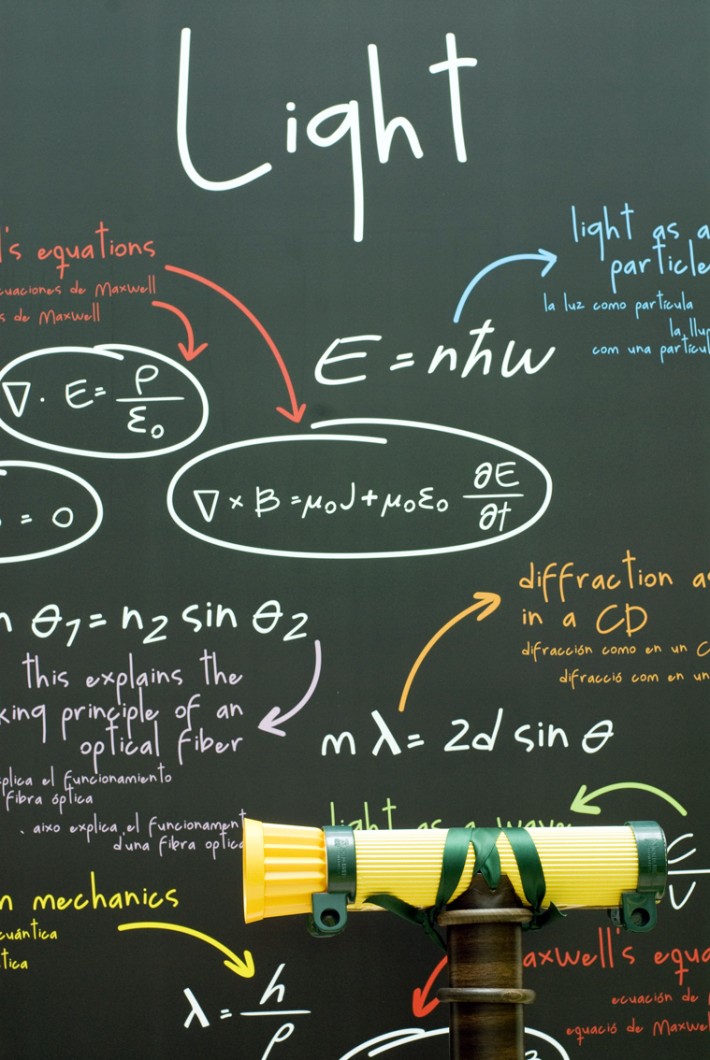 Light
's equations
cuaciones de Maxwell
s de Maxwell
light as a
particle
la luz como partícula
la llu
com una partícul
E = nħω
∇ · E = ρ/ε₀
= 0
∇ × B = μ₀J + μ₀ε₀ ∂E/∂t
n θ₁ = n₂ sin θ₂
this explains the
king principle of an
optical fiber
plica el funcionamiento
fibra óptica
això explica el funcionament
d'una fibra òptica
diffraction as
in a CD
difracción como en un C
difracció com en un
m λ = 2d sin θ
light as a wave
c
v
n mechanics
cuántica
tica
λ = h/ρ
axwell's equa
ecuación de
equació de Maxwel